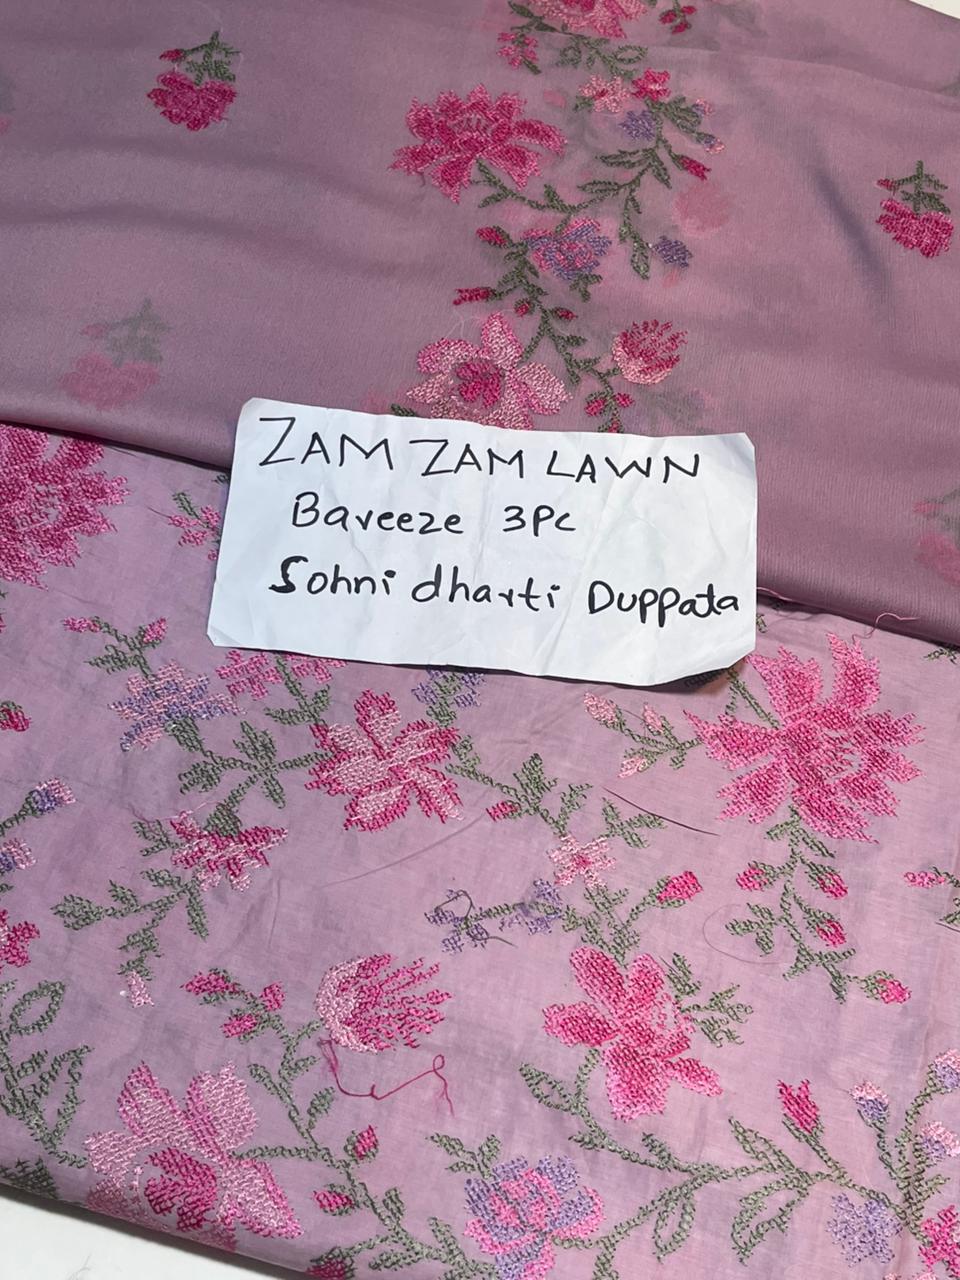 ZAM ZAM LAWN
Bareeze 3PC
Sohni dharti Duppata